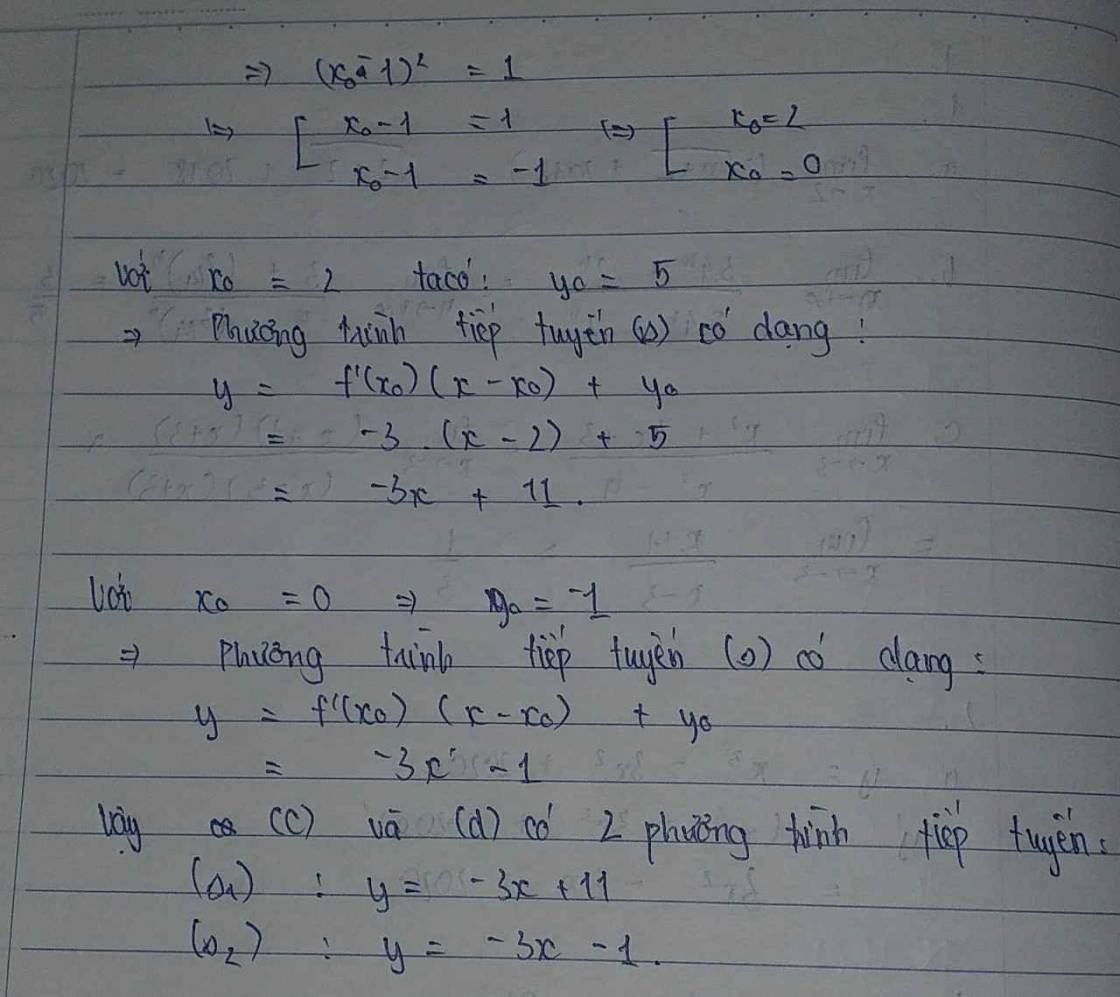 => (x₀ - 1)² = 1
<=> [ x₀ - 1 = 1 <=> [ x₀ = 2
x₀ - 1 = -1 x₀ = 0
Với x₀ = 2 ta có: y₀ = 5
=> Phương trình tiếp tuyến (Δ) có dạng:
y = f'(x₀) (x - x₀) + y₀
= -3 (x - 2) + 5
= -3x + 11.
Với x₀ = 0 => y₀ = -1
=> Phương trình tiếp tuyến (Δ) có dạng:
y = f'(x₀) (x - x₀) + y₀
= -3x - 1
Vậy (C) và (d) có 2 phương trình tiếp tuyến:
(Δ₁) : y = -3x + 11
(Δ₂) : y = -3x - 1.